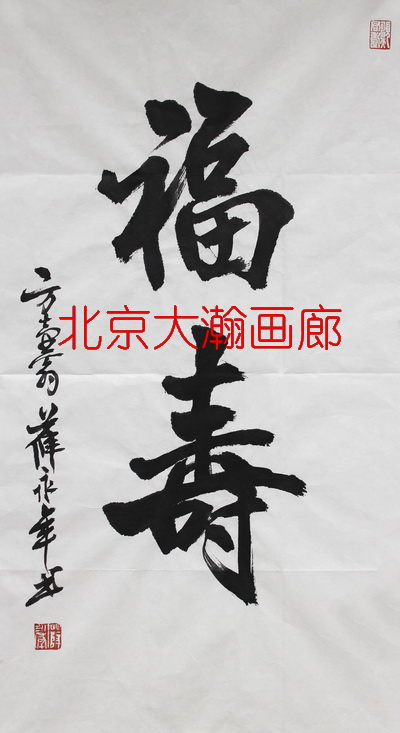 福
寿
北京大瀚画廊
薛永年书